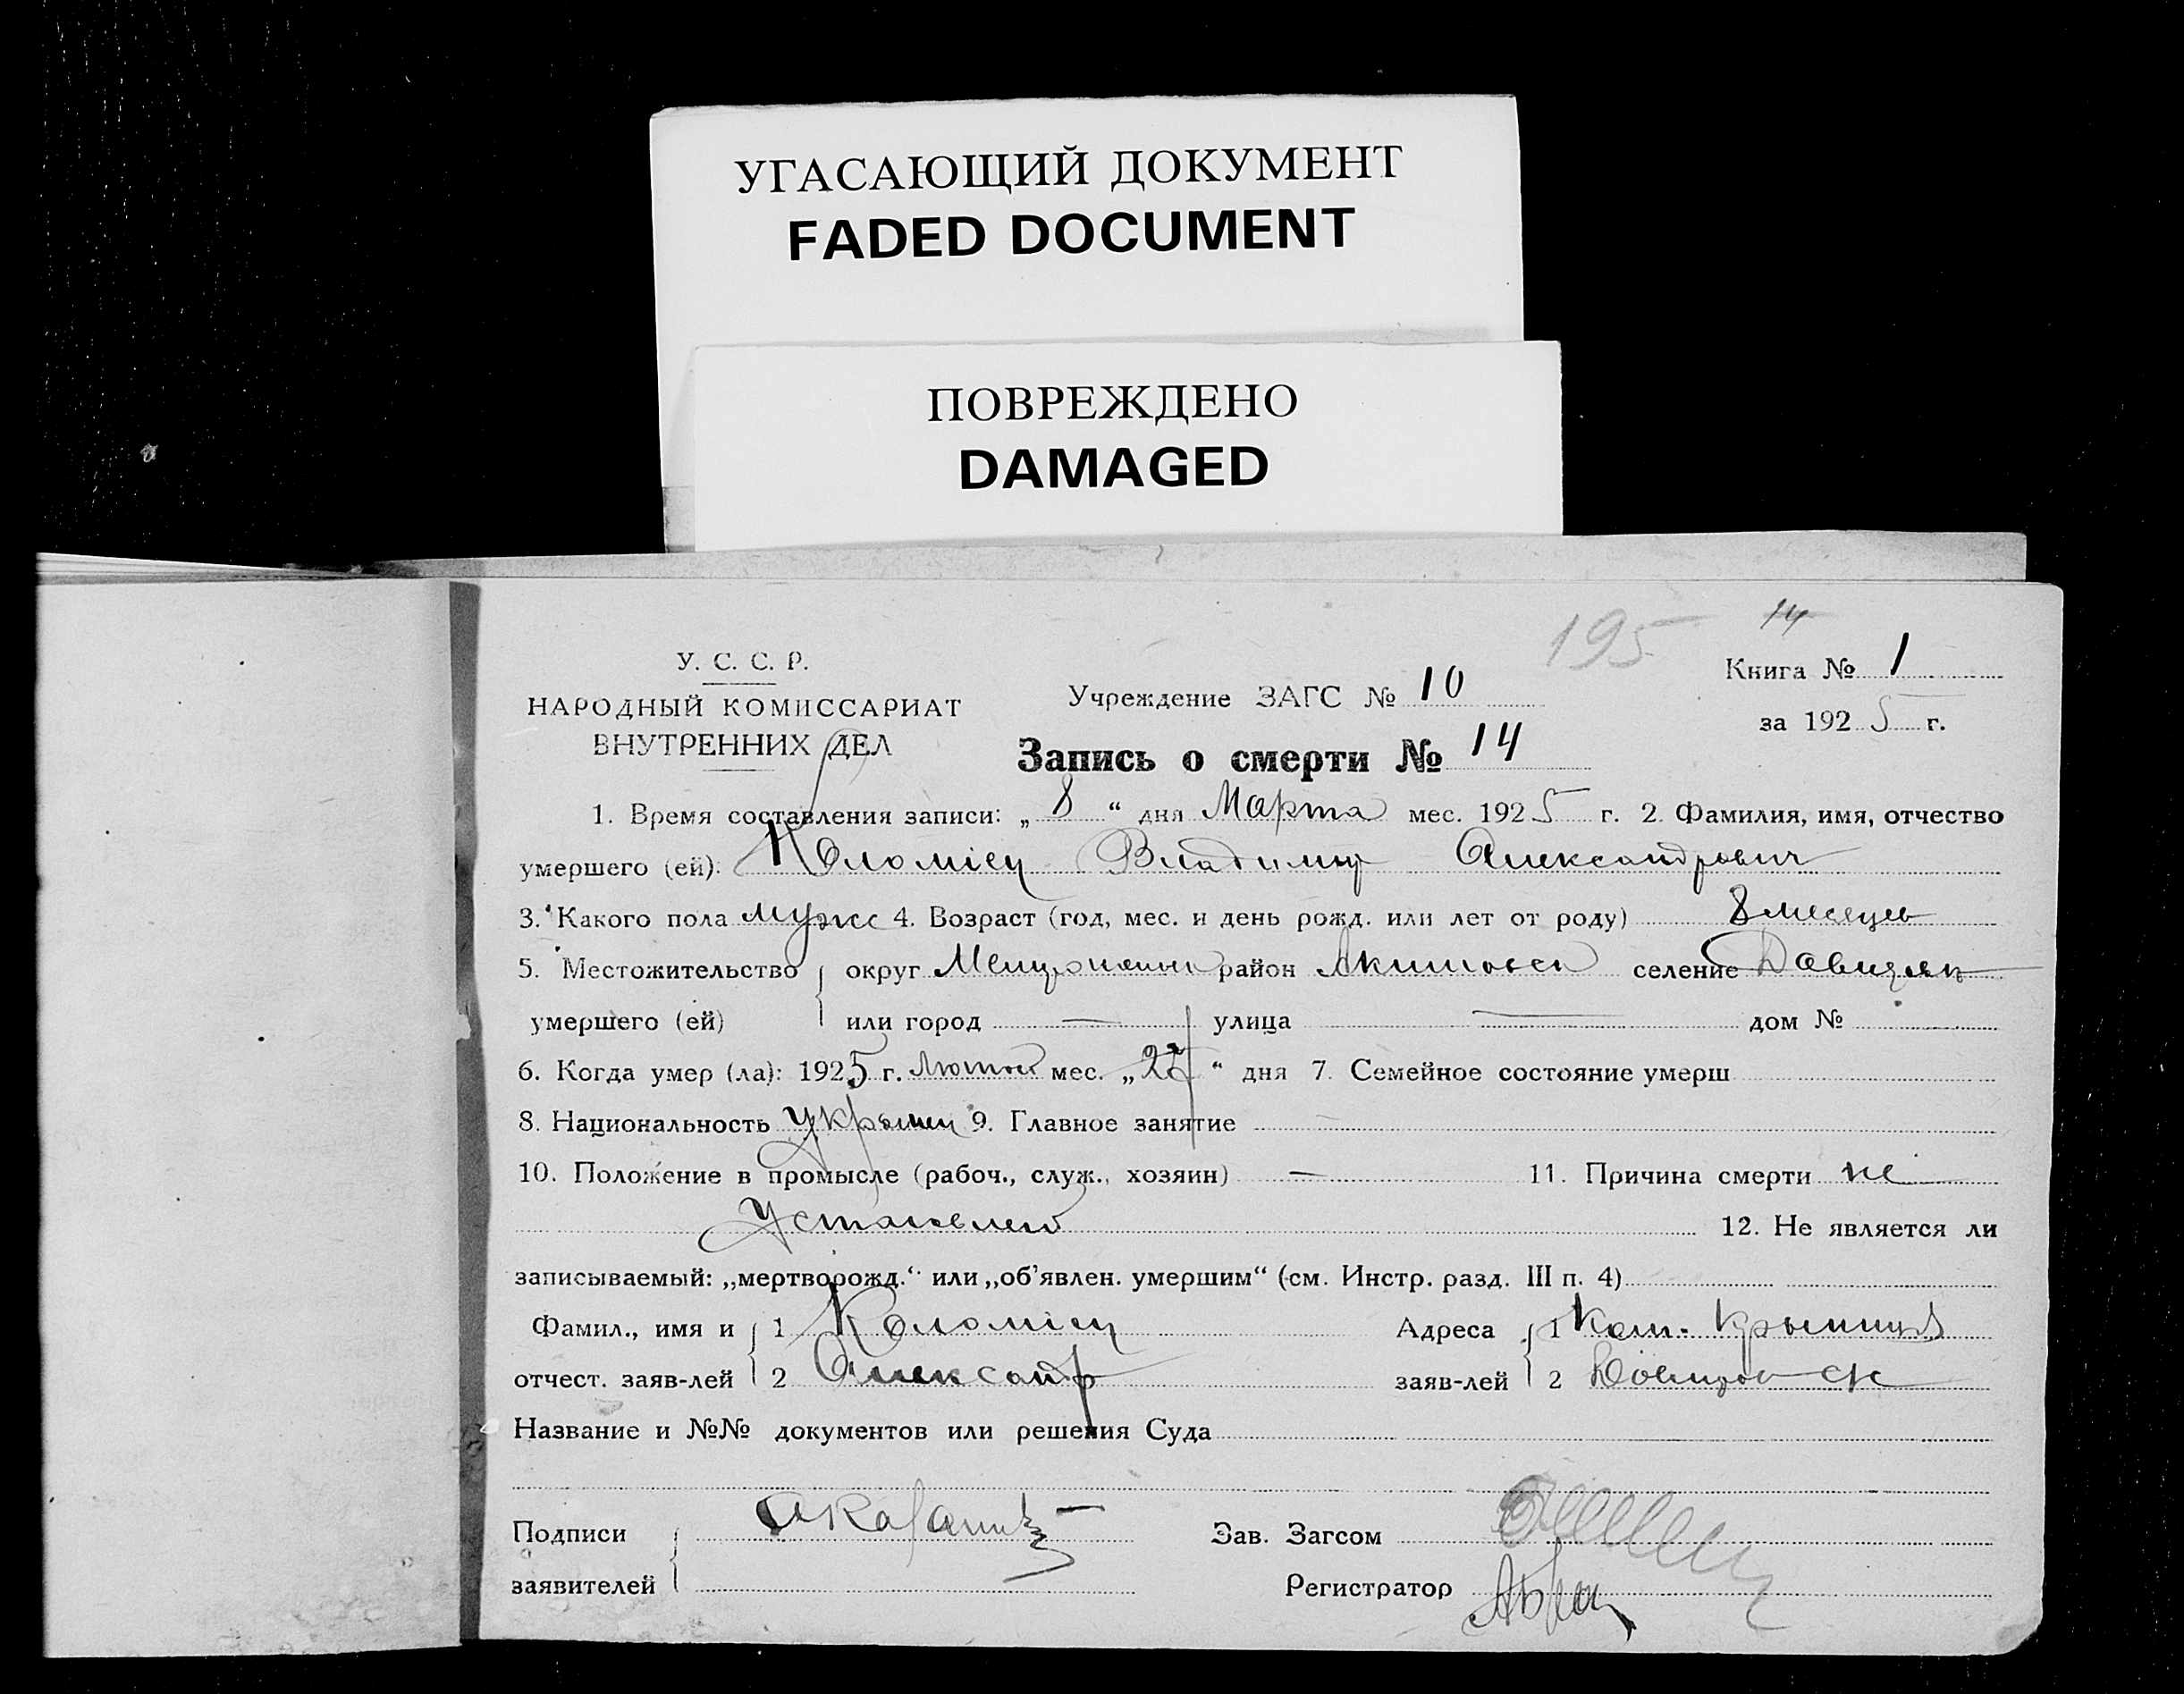 УГАСАЮЩИЙ ДОКУМЕНТ
FADED DOCUMENT
ПОВРЕЖДЕНО
DAMAGED
195 14
У. С. С. Р.
НАРОДНЫЙ КОМИССАРИАТ
ВНУТРЕННИХ ДЕЛ
Учреждение ЗАГС № 10
Книга № 1
за 1925 г.
Запись о смерти № 14
1. Время составления записи: „ 8 “ дня Марта мес. 1925 г. 2. Фамилия, имя, отчество
умершего (ей): Коломіец Владимир Александрович
3. Какого пола муж 4. Возраст (год, мес. и день рожд. или лет от роду) 8 месецев
5. Местожительство округ район селение
умершего (ей) или город — улица — дом №
6. Когда умер (ла): 1925 г. мес. „ 27 “ дня 7. Семейное состояние умерш
8. Национальность 9. Главное занятие
10. Положение в промысле (рабоч., служ., хозяин) — 11. Причина смерти не
12. Не является ли
записываемый: „мертворожд.“ или „об’явлен. умершим“ (см. Инстр. разд. III п. 4)
Фамил., имя и 1 Коломіец Адреса 1
отчест. заяв-лей 2 Александр заяв-лей 2
Название и №№ документов или решения Суда
Подписи Зав. Загсом
заявителей Регистратор